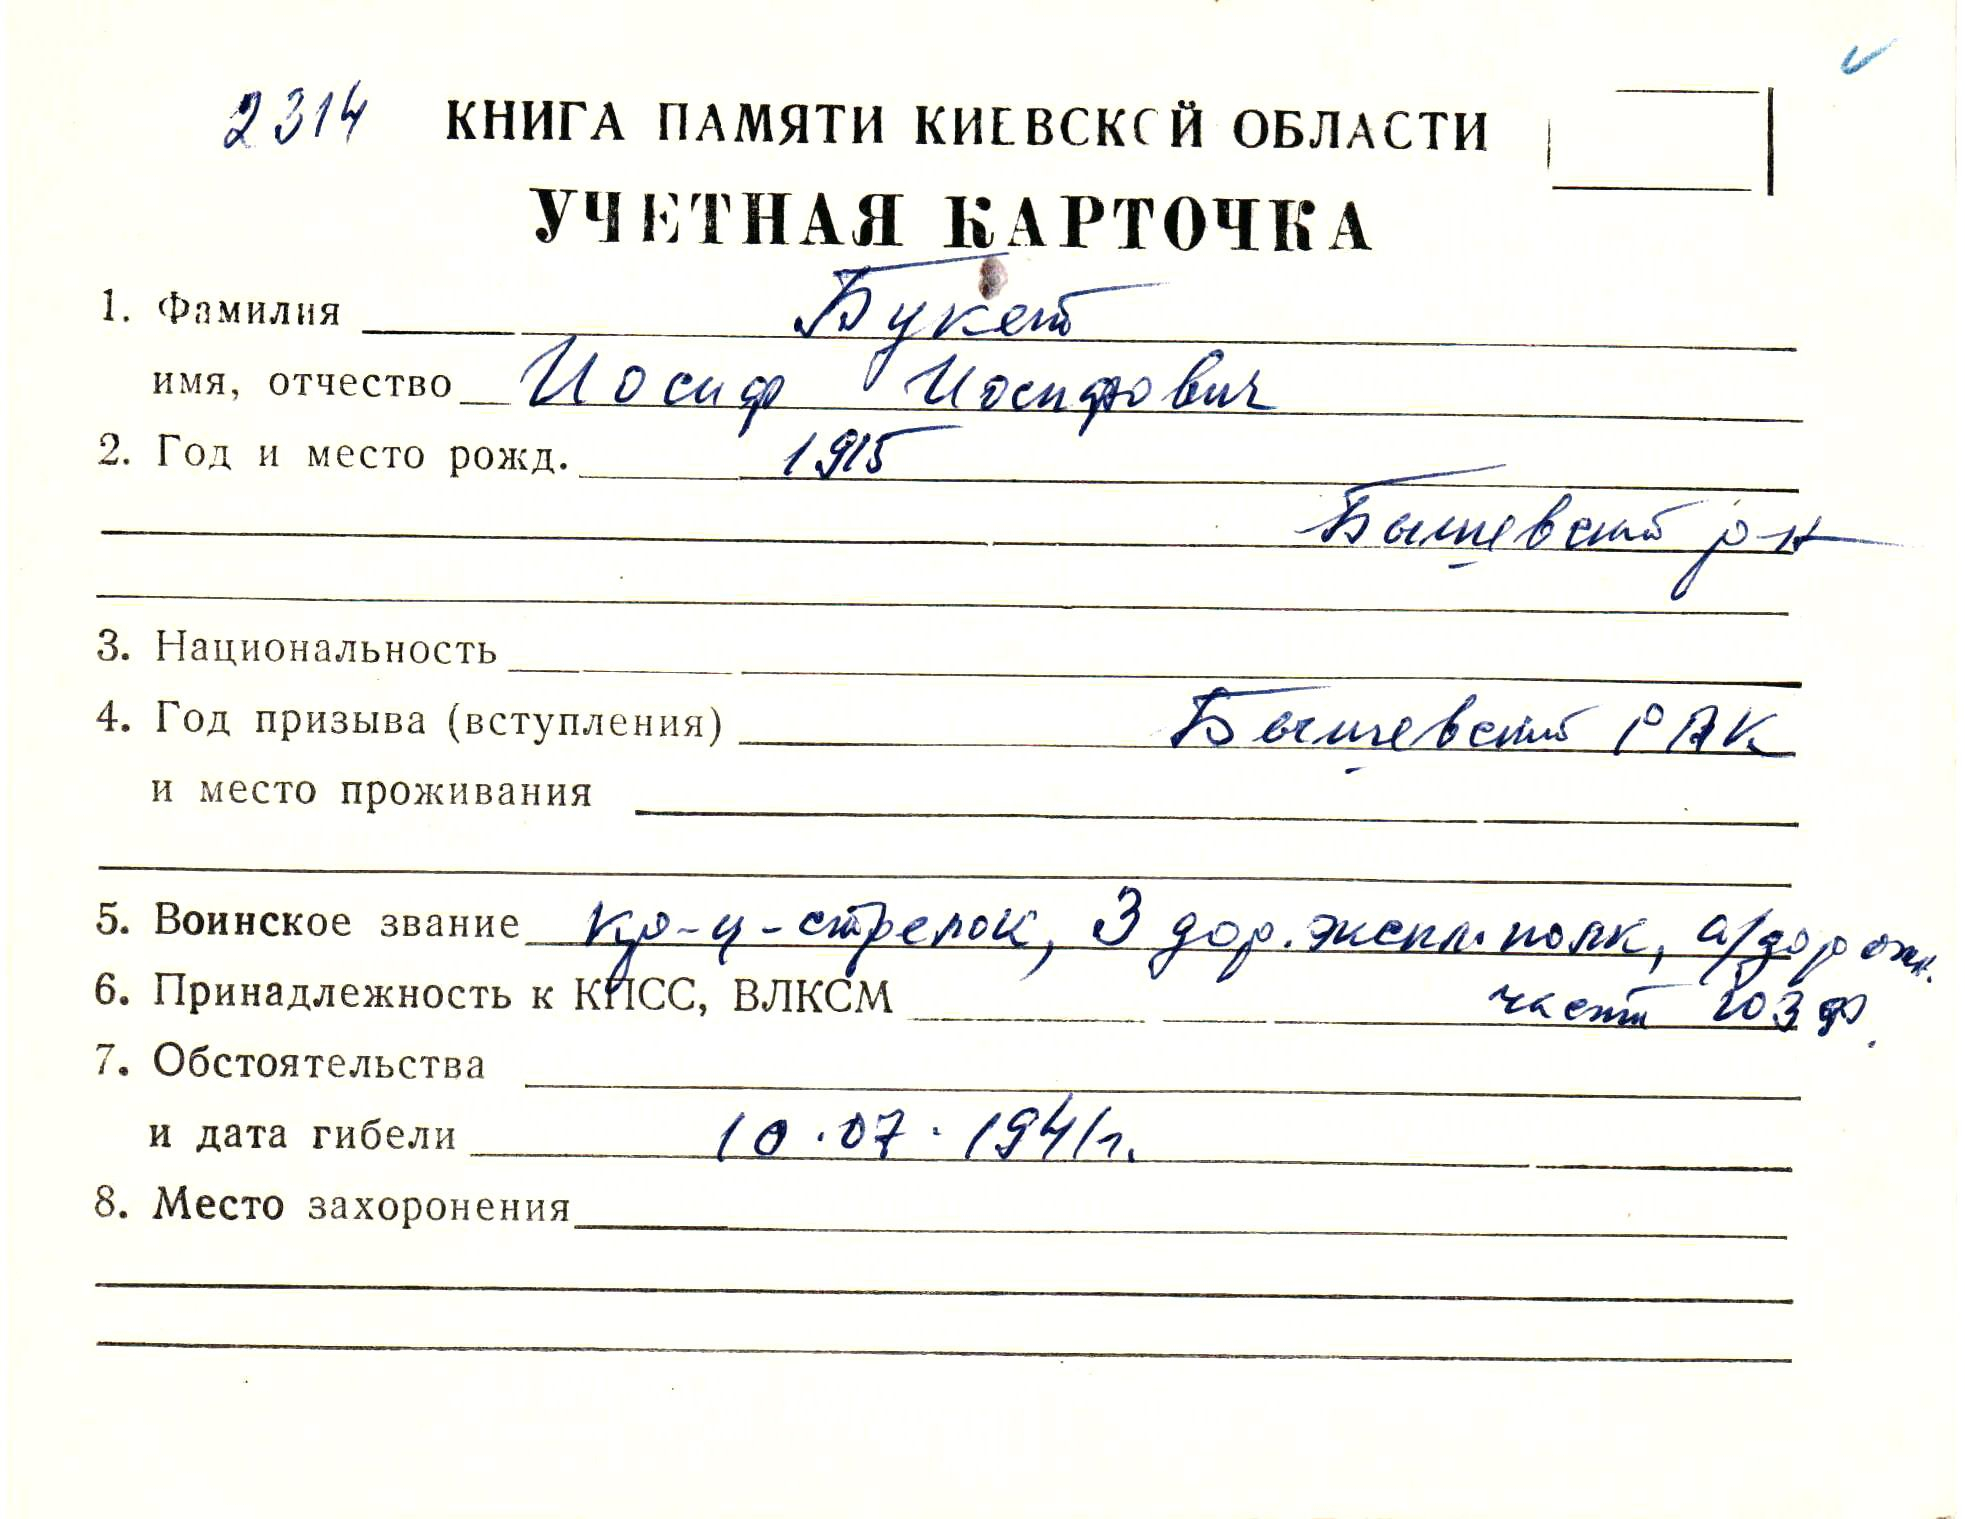 2314 КНИГА ПАМЯТИ КИЕВСКОЙ ОБЛАСТИ
УЧЕТНАЯ КАРТОЧКА
1. Фамилия Букет
имя, отчество Иосиф Иосифович
2. Год и место рожд. 1915
Бышевский р-н
3. Национальность
4. Год призыва (вступления) Бышевский РВК
и место проживания
5. Воинское звание кр-ц-стрелок, 3 дор. экспл. полк, а/дорожн.
6. Принадлежность к КПСС, ВЛКСМ части ЮЗФ.
7. Обстоятельства
и дата гибели 10.07.1941г.
8. Место захоронения